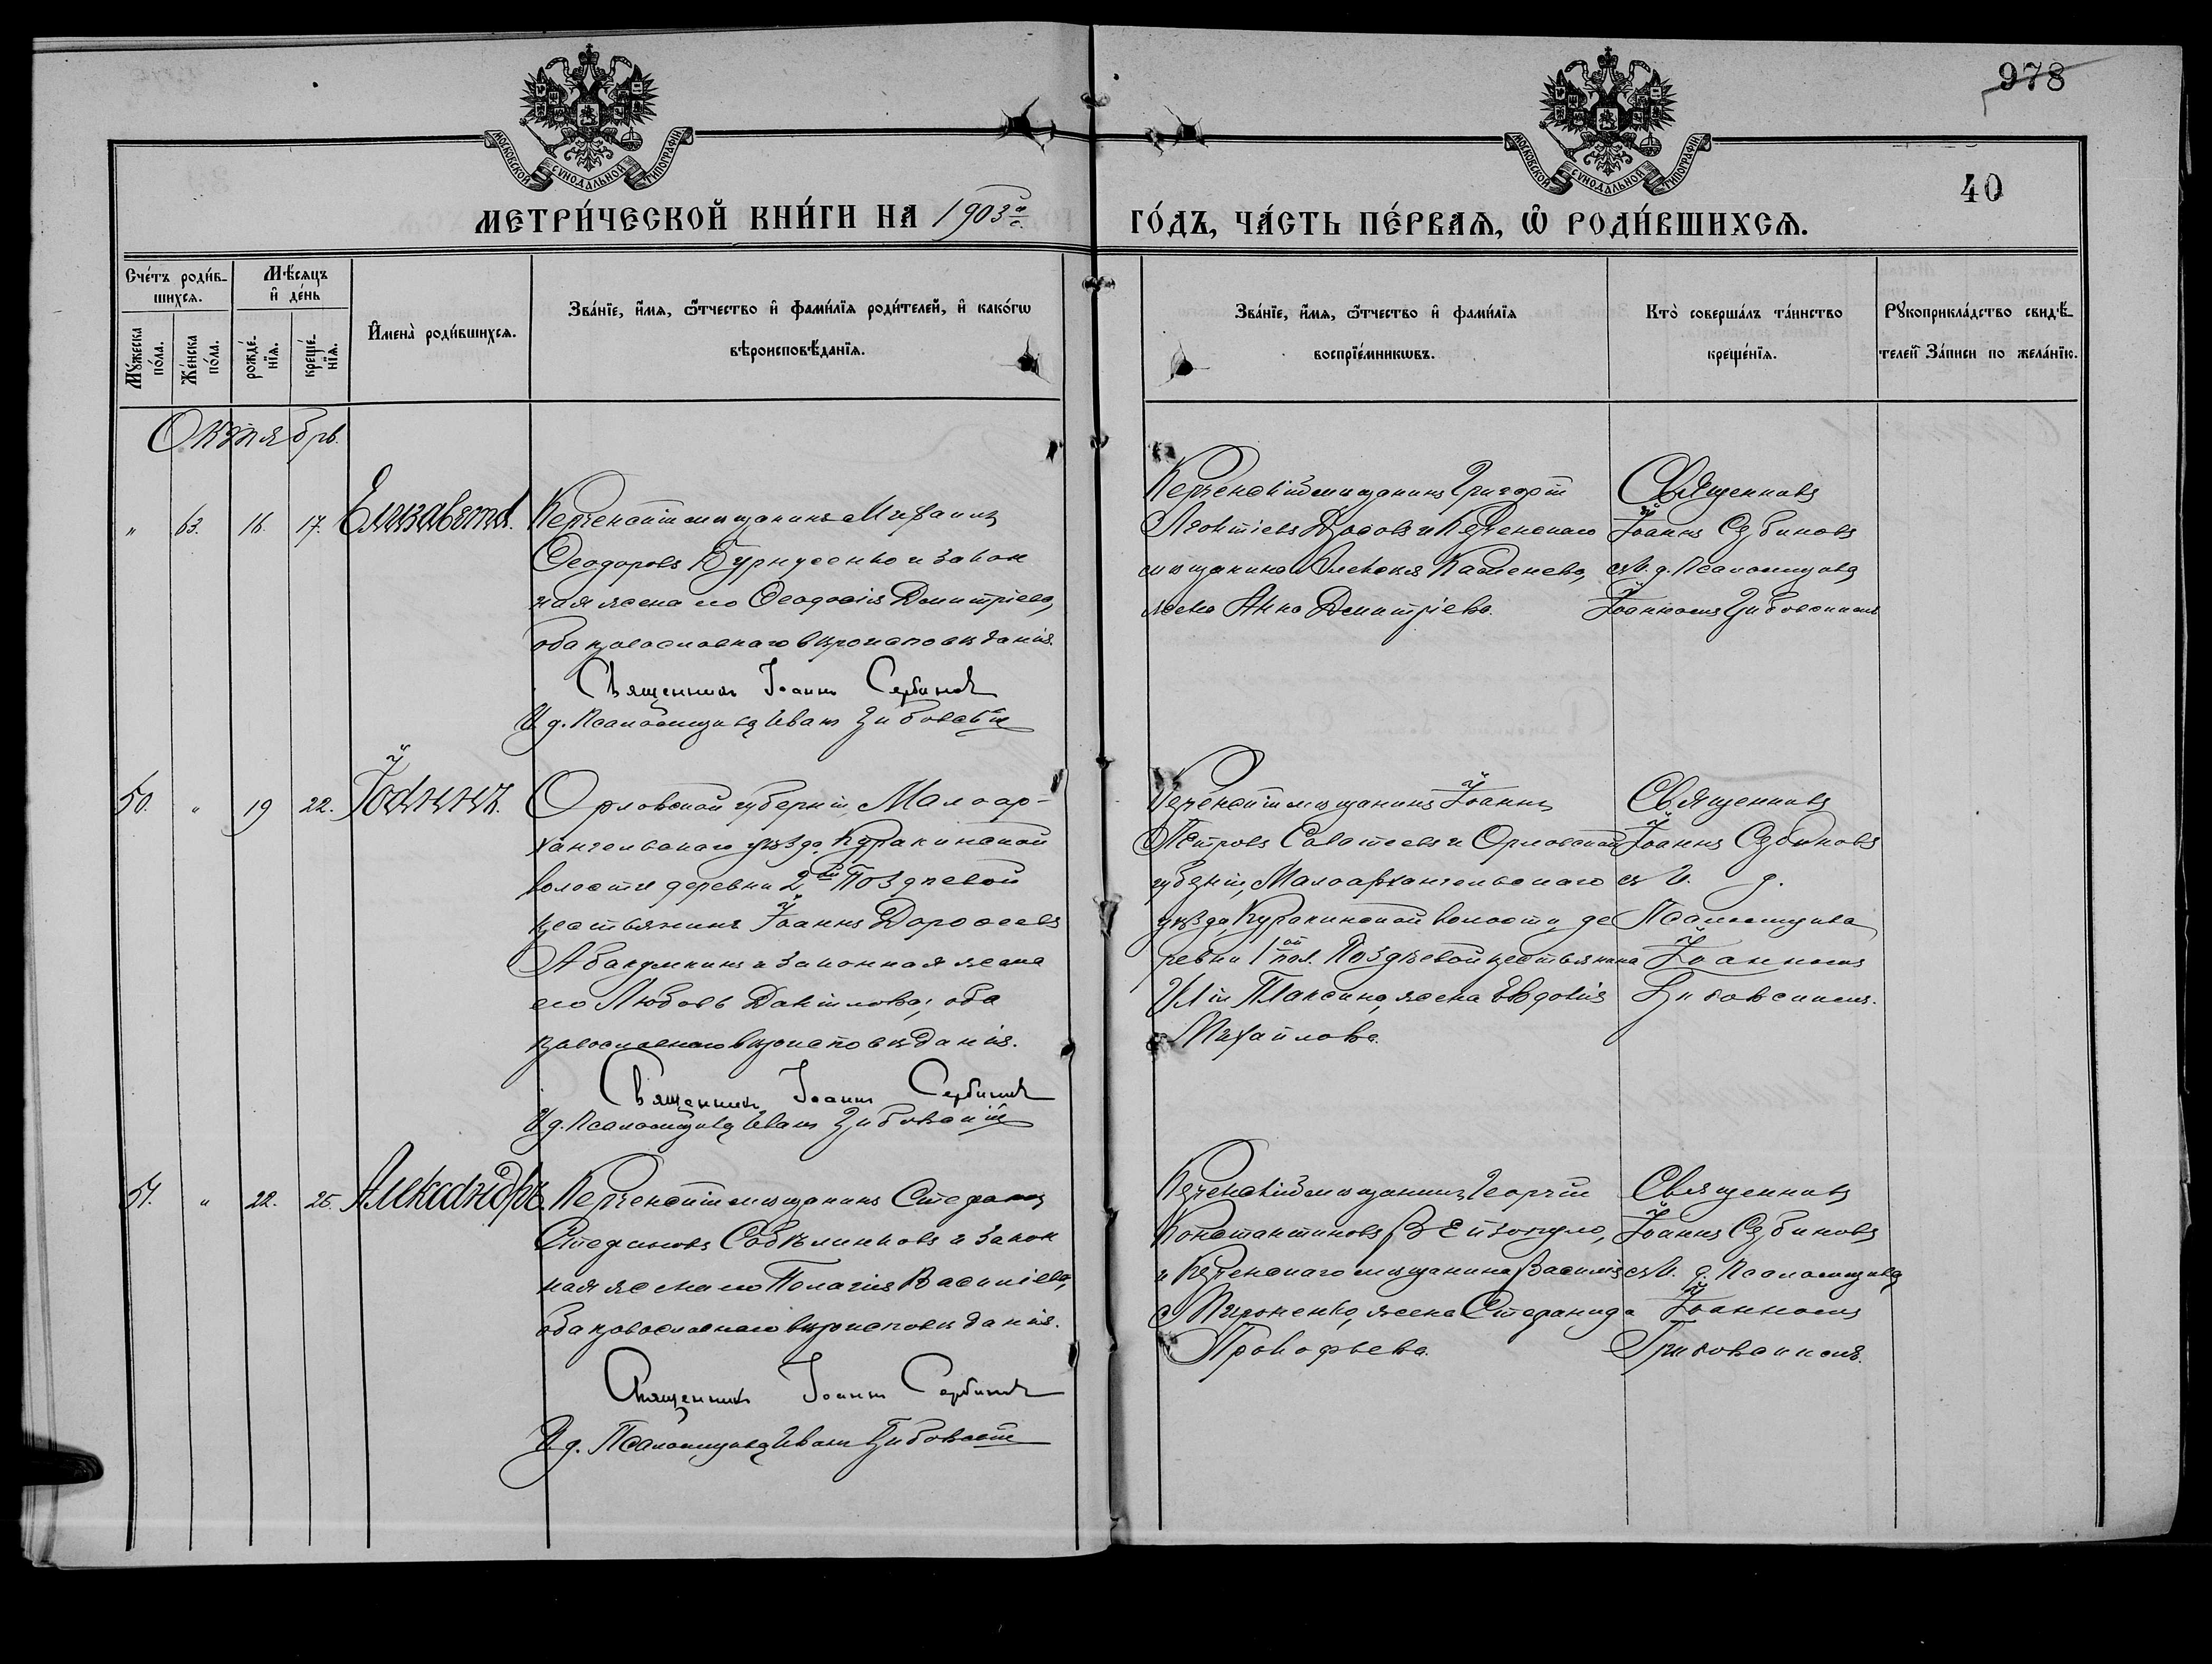 978
МОСКОВСКОЙ СѴНОДАЛЬНОЙ ТИПОГРАФІИ
МОСКОВСКОЙ СѴНОДАЛЬНОЙ ТИПОГРАФІИ
40
МЕТРИ́ЧЕСКОЙ КНИ́ГИ НА 1903й
ГО́ДЪ, ЧА́СТЬ ПЕ́РВАѦ, Ѡ҆ РОДИ́ВШИХСѦ.
Сче́тъ роди́в-
шихсѧ.
Мꙋ́жеска по́ла.
Же́нска по́ла.
Мѣ́сѧцъ
и҆ де́нь
рожде́-
нїѧ.
креще́-
нїѧ.
И҆мена̀ роди́вшихсѧ.
Зва́нїе, и҆́мѧ, ѻ҆́тчество и҆ фами́лїѧ роди́телей, и҆ како́гѡ
вѣроисповѣ́данїѧ.
Зва́нїе, и҆́мѧ, ѻ҆́тчество и҆ фами́лїѧ
воспрїе́мникѡвъ.
Кто̀ соверша́лъ та́инство
креще́нїѧ.
Рꙋкоприкла́дство свидѣ́-
телей За́писи по жела́нїю.
Октябрь.
" 63. 16. 17. Елизавета.
Керченскій мѣщанинъ Михаилъ
Ѳеодоровъ Бурнусенко и закон
ная жена его Ѳеодосія Димитріева,
оба православнаго вѣроисповѣданія.
Священникъ Іоаннъ Сербиновъ
И. д. Псаломщика Иванъ Цибовскій
Керченскій мѣщанинъ Григорій
Леонтіевъ и Керченскаго
мѣщанина Алексѣя
жена Анна Димитріева.
Священникъ
Іоаннъ Сербиновъ
съ И. д. Псаломщика
Іоанномъ Цибовскимъ
50. " 19 22. Іоаннъ.
Орловской губерніи, Малоар-
хангельскаго уѣзда, Куракинской
волости деревни 2й Поздѣевой
крестьянинъ Іоаннъ Дороѳеевъ
Абакумкинъ и законная жена
его Любовь Даніилова; оба
православнаго вѣроисповѣданія.
Священникъ Іоаннъ Сербиновъ
И. д. Псаломщика Иванъ Цибовскій
Керченскій мѣщанинъ Іоаннъ
Петровъ Саватеевъ и Орловской
губерніи, Малоархангельскаго
уѣзда, Куракинской волости, де
ревни 1ой пол. Поздѣевой крестьянина
Иліи Плаксина, жена Евдокія
Михайлова.
Священникъ
Іоаннъ Сербиновъ
съ И. д.
Псаломщика
Іоанномъ
Цибовскимъ.
51. " 22. 25. Александръ.
Керченскій мѣщанинъ Стефанъ
Стефановъ и закон
ная жена его Пелагія Василіева,
оба православнаго вѣроисповѣданія.
Священникъ Іоаннъ Сербиновъ
И. д. Псаломщика Иванъ Цибовскій
Керченскій мѣщанинъ Георгій
Константиновъ
и Керченскаго мѣщанина Василія
Мироненко, жена Стефанида
Прокофьева.
Священникъ
Іоаннъ Сербиновъ
съ И. д. Псаломщика
Іоанномъ